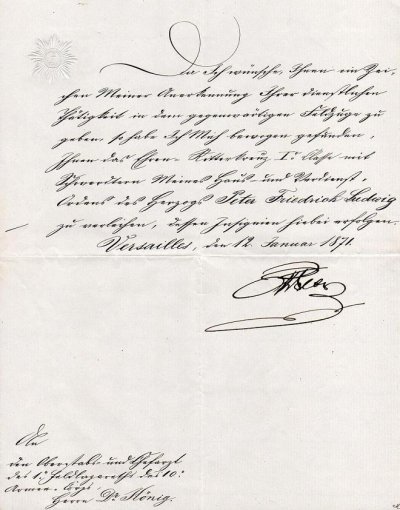 Da Ich wünsche, Ihnen ein Zei-
chen Meiner Anerkennung Ihrer dienstlichen
Thätigkeit in dem gegenwärtigen Feldzuge zu
geben, so habe Ich Mich bewogen gefunden,
Ihnen das Ehren-Ritterkreuz I. Klasse mit
Schwertern Meines Haus- und Verdienst-
Ordens des Herzogs Peter Friedrich Ludwig
zu verleihen, dessen Insignien hiebei erfolgen.
Versailles, den 12. Januar 1871.
Peter
An
den Oberstabs- und Chefarzt
des 1. Feldlazareths des 10.
Armee-Corps,
Herrn Dr.